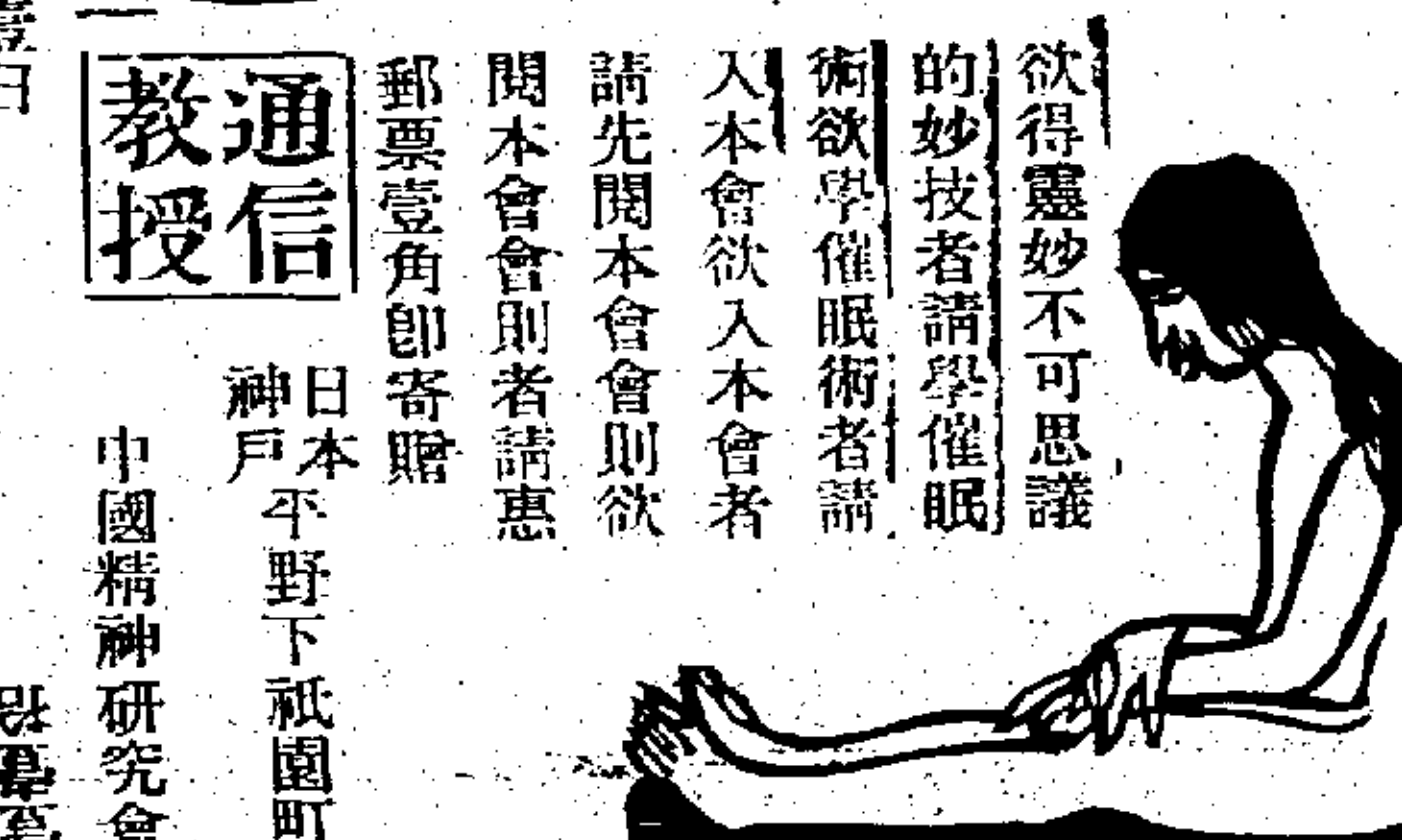 欲得靈妙不可思議
的妙技者請學催眠
術欲學催眠術者請
入本會欲入本會者
請先閱本會會則欲
閱本會會則者請惠
郵票壹角卽寄贈
通信
教授
日本
神戶
平野下祇園町
中國精神研究會